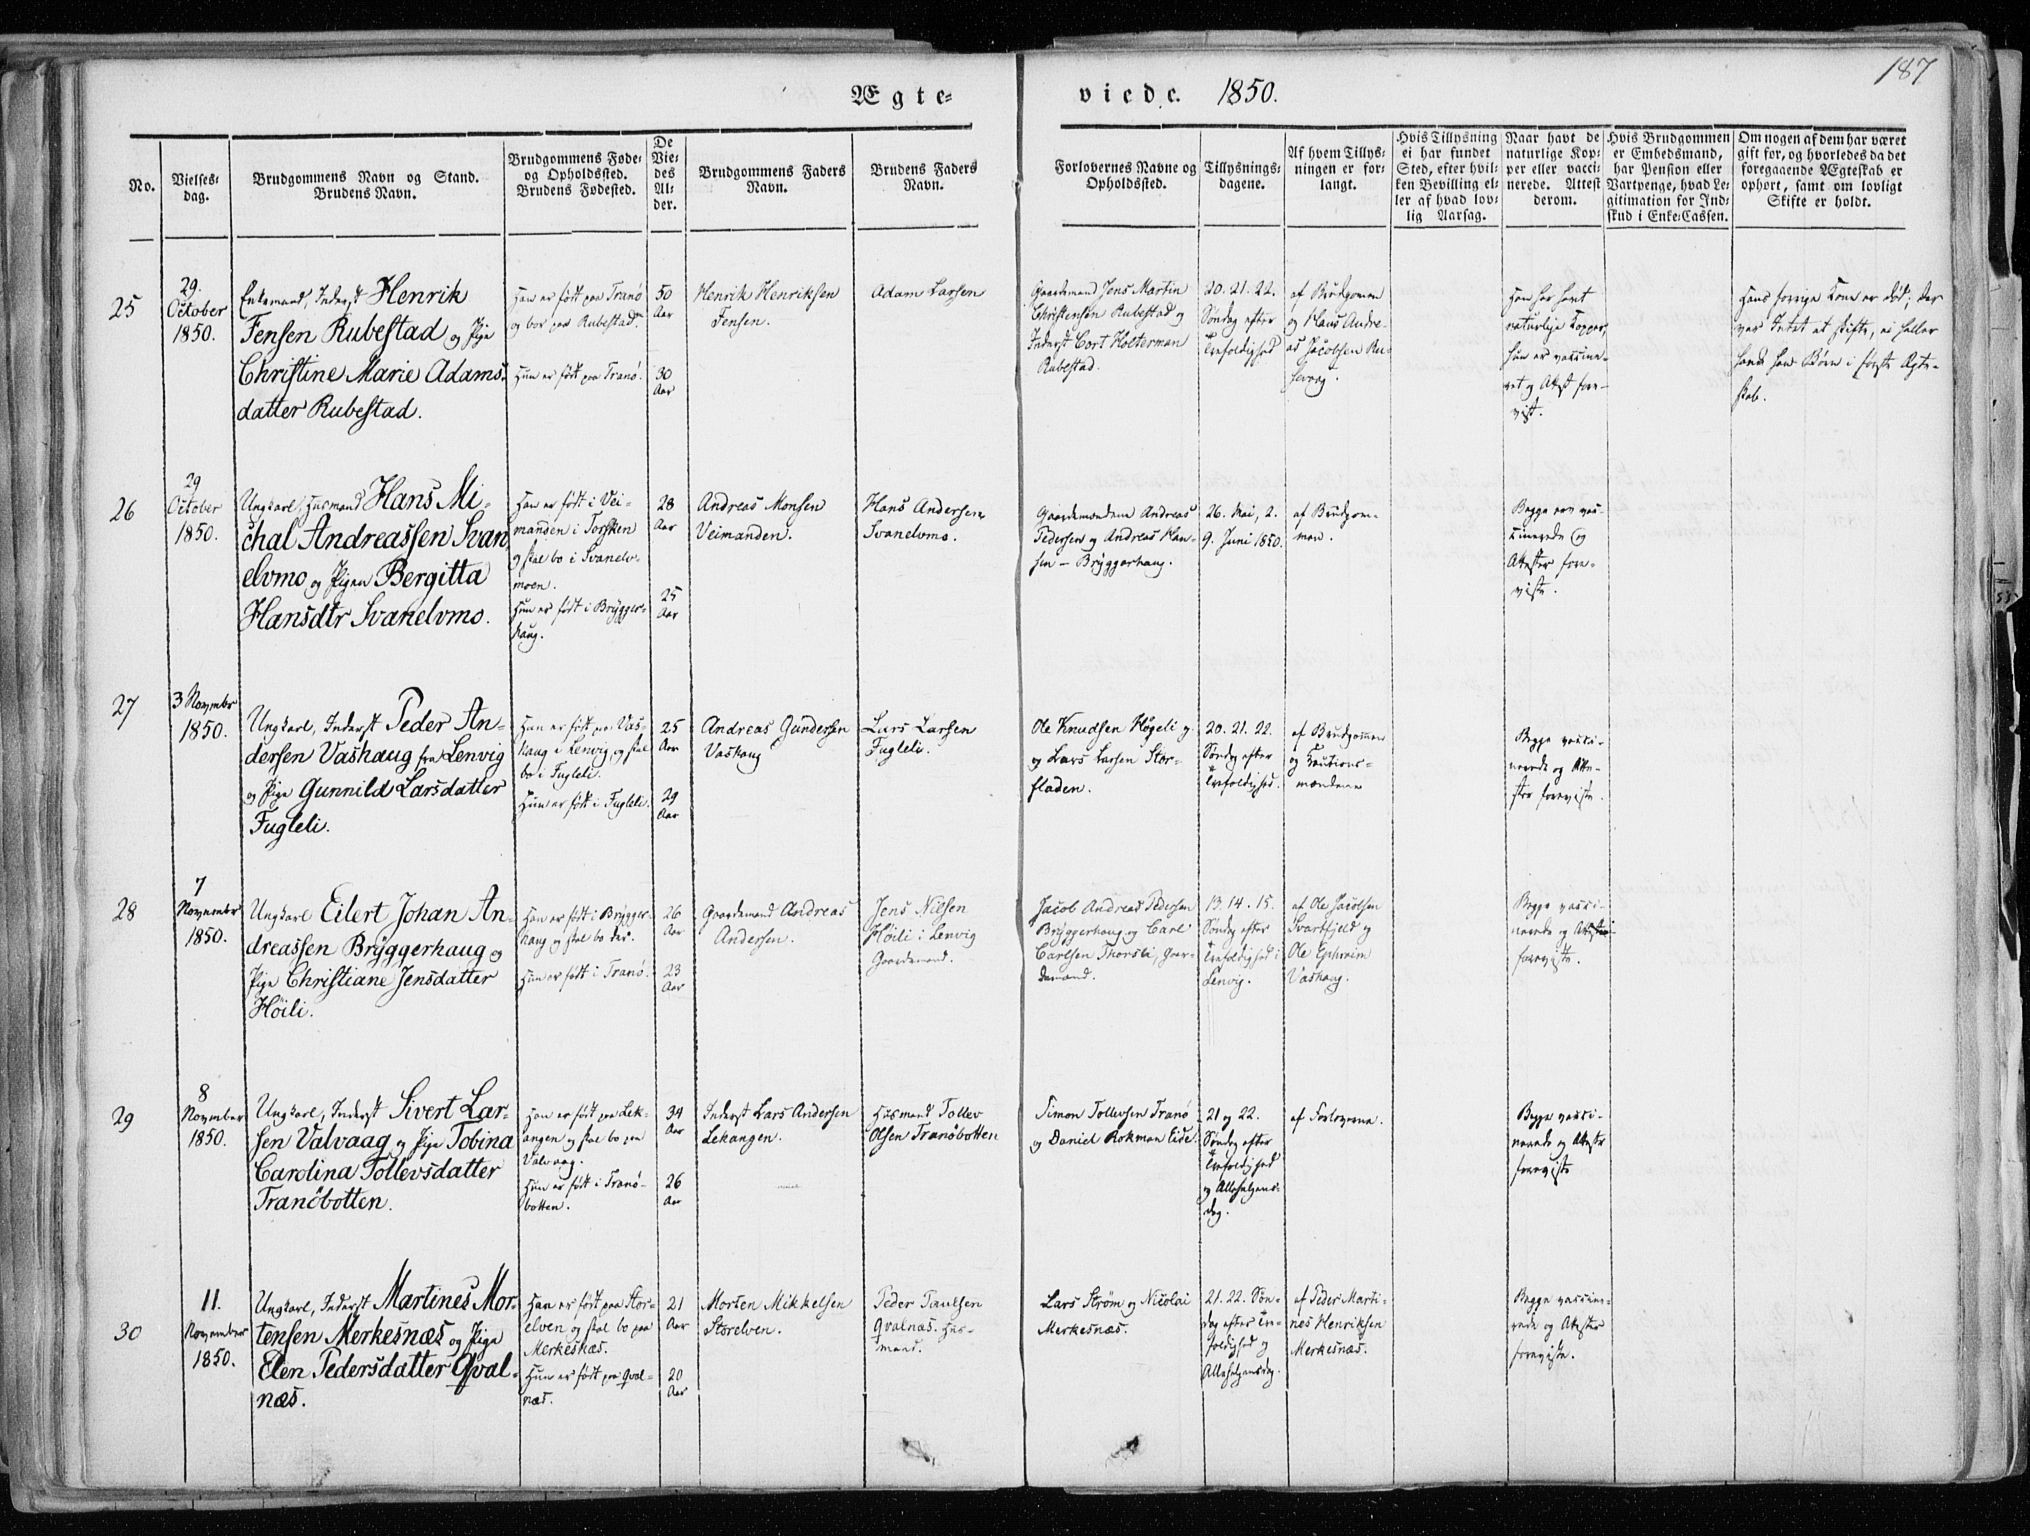 187
Ægte-
viede. 1850.
No.
Vielses-
dag.
Brudgommens Navn og Stand.
Brudens Navn.
Brudgommens Føde-
og Opholdssted.
Brudens Fødested.
De
Vie-
des
Al-
der.
Brudgommens Faders
Navn.
Brudens Faders
Navn.
Forlovernes Navne og
Opholdssted.
Tillysnings-
dagene.
Af hvem Tillys-
ningen er for-
langt.
Hvis Tillysning
ei har fundet
Sted, efter hvil-
ken Bevilling el-
ler af hvad lov-
lig Aarsag.
Naar havt de
naturlige Kop-
per eller vacci-
nerede. Attest
derom.
Hvis Brudgommen
er Embedsmand,
har Pension eller
Vartpenge, hvad Le-
gitimation for Ind-
skud i Enke-Cassen.
Om nogen af dem har været
gift før, og hvorledes da det
foregaaende Ægteskab er
ophørt, samt om lovligt
Skifte er holdt.
25
29.
October
1850.
Enkemand, Inderst Henrik
Jensen Rubestad og Pige
Christine Marie Adams-
datter Rubestad.
Han er født paa Tranø
og bor paa Rubestad.
Hun er født paa Tranø.
50
Aar
30
Aar
Henrik Henriksen
Jensen.
Adam Larsen
Gaardmand Jens Martin
Christensen Rubestad og
Inderst Cort Holterman
Rubestad.
20. 21. 22.
Søndag efter
Trefoldighed
af Brudgomen
og Hans Andre-
as Jacobsen Ru-
sevaag.
Han har havt
naturlige Kopper,
hun er vaccine-
ret og Attest fore-
vist.
Hans forrige Kone er død; der
var Intet at skifte, ei heller
havde han Børn i første Ægte-
skab.
26
29
October
1850.
Ungkarl, Husmand Hans Mi-
chal Andreassen Svan-
elvmo og Pigen Bergitta
Hansdtr Svanelvmo.
Han er født i Vei-
manden i Torsken
og skal bo i Svanelv-
moen.
Hun er født i Brygger-
haug.
28
Aar
25
Aar
Andreas Monsen
Veimanden.
Hans Andersen
Svanelvmo.
Gaardmændene Andreas
Pedersen og Andreas Han-
sen - Bryggerhaug.
26. Mai, 2.
9. Juni 1850.
af Brudgom-
men.
Begge ere vac-
cinerede og
Attester fore-
viste.
27
3 Novmbr
1850.
Ungkarl, Inderst Peder An-
dersen Vashaug fra Lenvig
og Pige Gunnild Larsdatter
Fugleli.
Han er født paa Vas-
haug i Lenvig og skal
bo i Fugleli.
Hun er født i Fugleli.
25
Aar
29
Aar
Andreas Gundersen
Vashaug
Lars Larsen
Fugleli.
Ole Knudsen Høgeli
og Lars Larsen Stor-
fladen.
20. 21. 22.
Søndag efter
Trefoldighed.
af Brudgommen
og Cautions-
mændene
Begge vacci-
nerede og Atte-
ster foreviste.
28
7
November
1850.
Ungkarl Eilert Johan An-
dreassen Bryggerhaug og
Pige Christiane Jensdatter
Høili.
Han er født i Brygger-
haug og skal bo der.
Hun er født i Tranø.
26
Aar
23
Aar
Gaardmand Andreas
Andersen.
Jens Nilsen
Høili i Lenvig
Gaardmand.
Jacob Andreas Pedersen
Bryggerhaug og Carl
Carlsen Thorsli, Gaar-
dmand.
13. 14. 15.
Søndag efter
Trefoldighed i
Lenvig.
af Ole Jacobsen
Svartfjeld og
Ole Ephraim
Vashaug.
Begge vacci-
nerede og Attester
foreviste.
29
8
November
1850.
Ungkarl, Inderst Sivert Lar-
sen Valvaag og Pige Tobina
Carolina Tollevsdatter
Tranöbotten.
Han er født paa Lek-
angen og skal bo paa
Valvaag.
Hun er født i Tranö-
botten.
34
Aar
26
Aar
Inderst Lars Andersen
Lekangen.
Husmand Tollev
Olsen Tranöbotten
Simon Tollevsen Tranö
og Daniel Rokman Eide.
21 og 22.
Søndag efter
Trefoldighed
og Allehelgens-
dag.
af Forloverne.
Begge vacci-
nerede og Attester
foreviste
30
11.
November
1850.
Ungkarl, Inderst Martines Mor-
tensen Merkesnæs og Pige
Elen Pedersdatter Qval-
næs.
Han er født paa Stor-
elven og skal bo paa
Merkesnæs.
Hun er født paa Qval-
næs.
21
Aar
20
Aar
Morten Mikkelsen
Storelven.
Peder Paulsen
Qvalnæs. Hus-
mand.
Lars Strøm og Nicolai
Merkesnæs.
21. 22. Søn-
dag efter Tre-
foldighed og
Allehelgensdag.
af Peder Marti-
nes Henriksen
Merkesnæs.
Begge vaccine-
rede og Attester
foreviste.